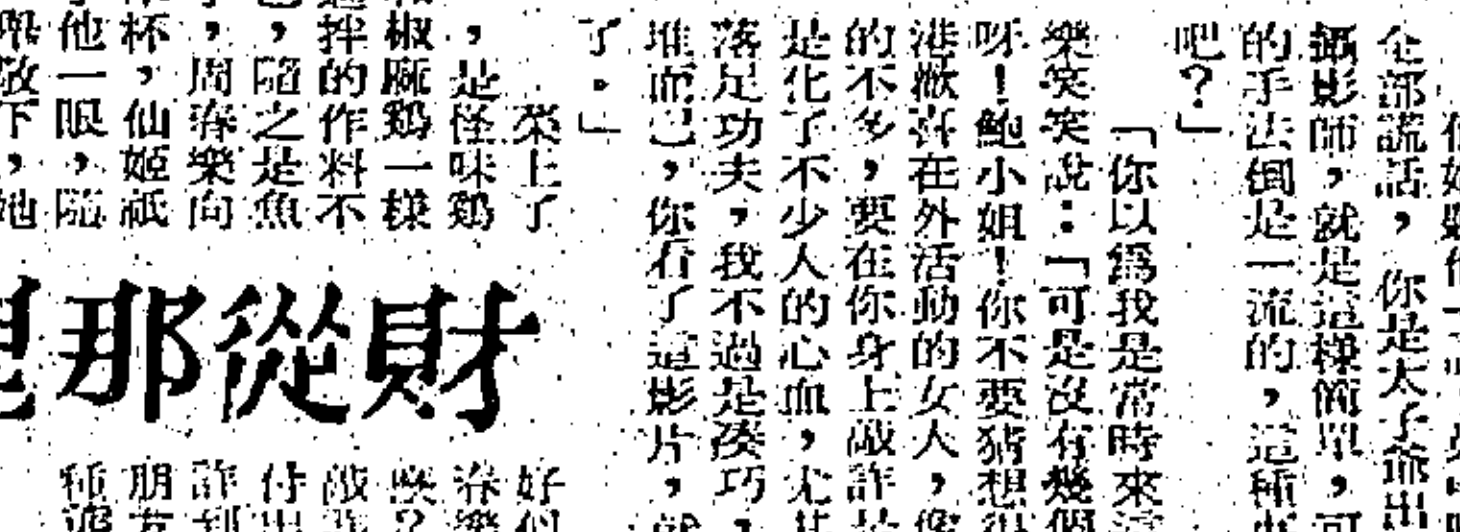 全部謊話，你是太子爺出
攝影師，就是這樣簡單，可
的手法倒是一流的，這種
吧？」
「你以爲我是常時來這
樂笑笑說：「可是沒有幾個
呀！鮑小姐！你不要猜想得
港歡喜在外活動的女人，像
的不多，要在你身上敲詐是
是化了不少人的心血，尤其
落足功夫，我不過是湊巧，
堆而已，你看了這影片，就
了。」
菜上了
，是怪味鷄
椒麻鷄一樣
拌的作料不
，隨之是魚
，周春樂向
杯，仙姬祇
他一眼，隨
敬下，她
財從那
好似
春樂
？
敲
付出
詐到
朋友
種